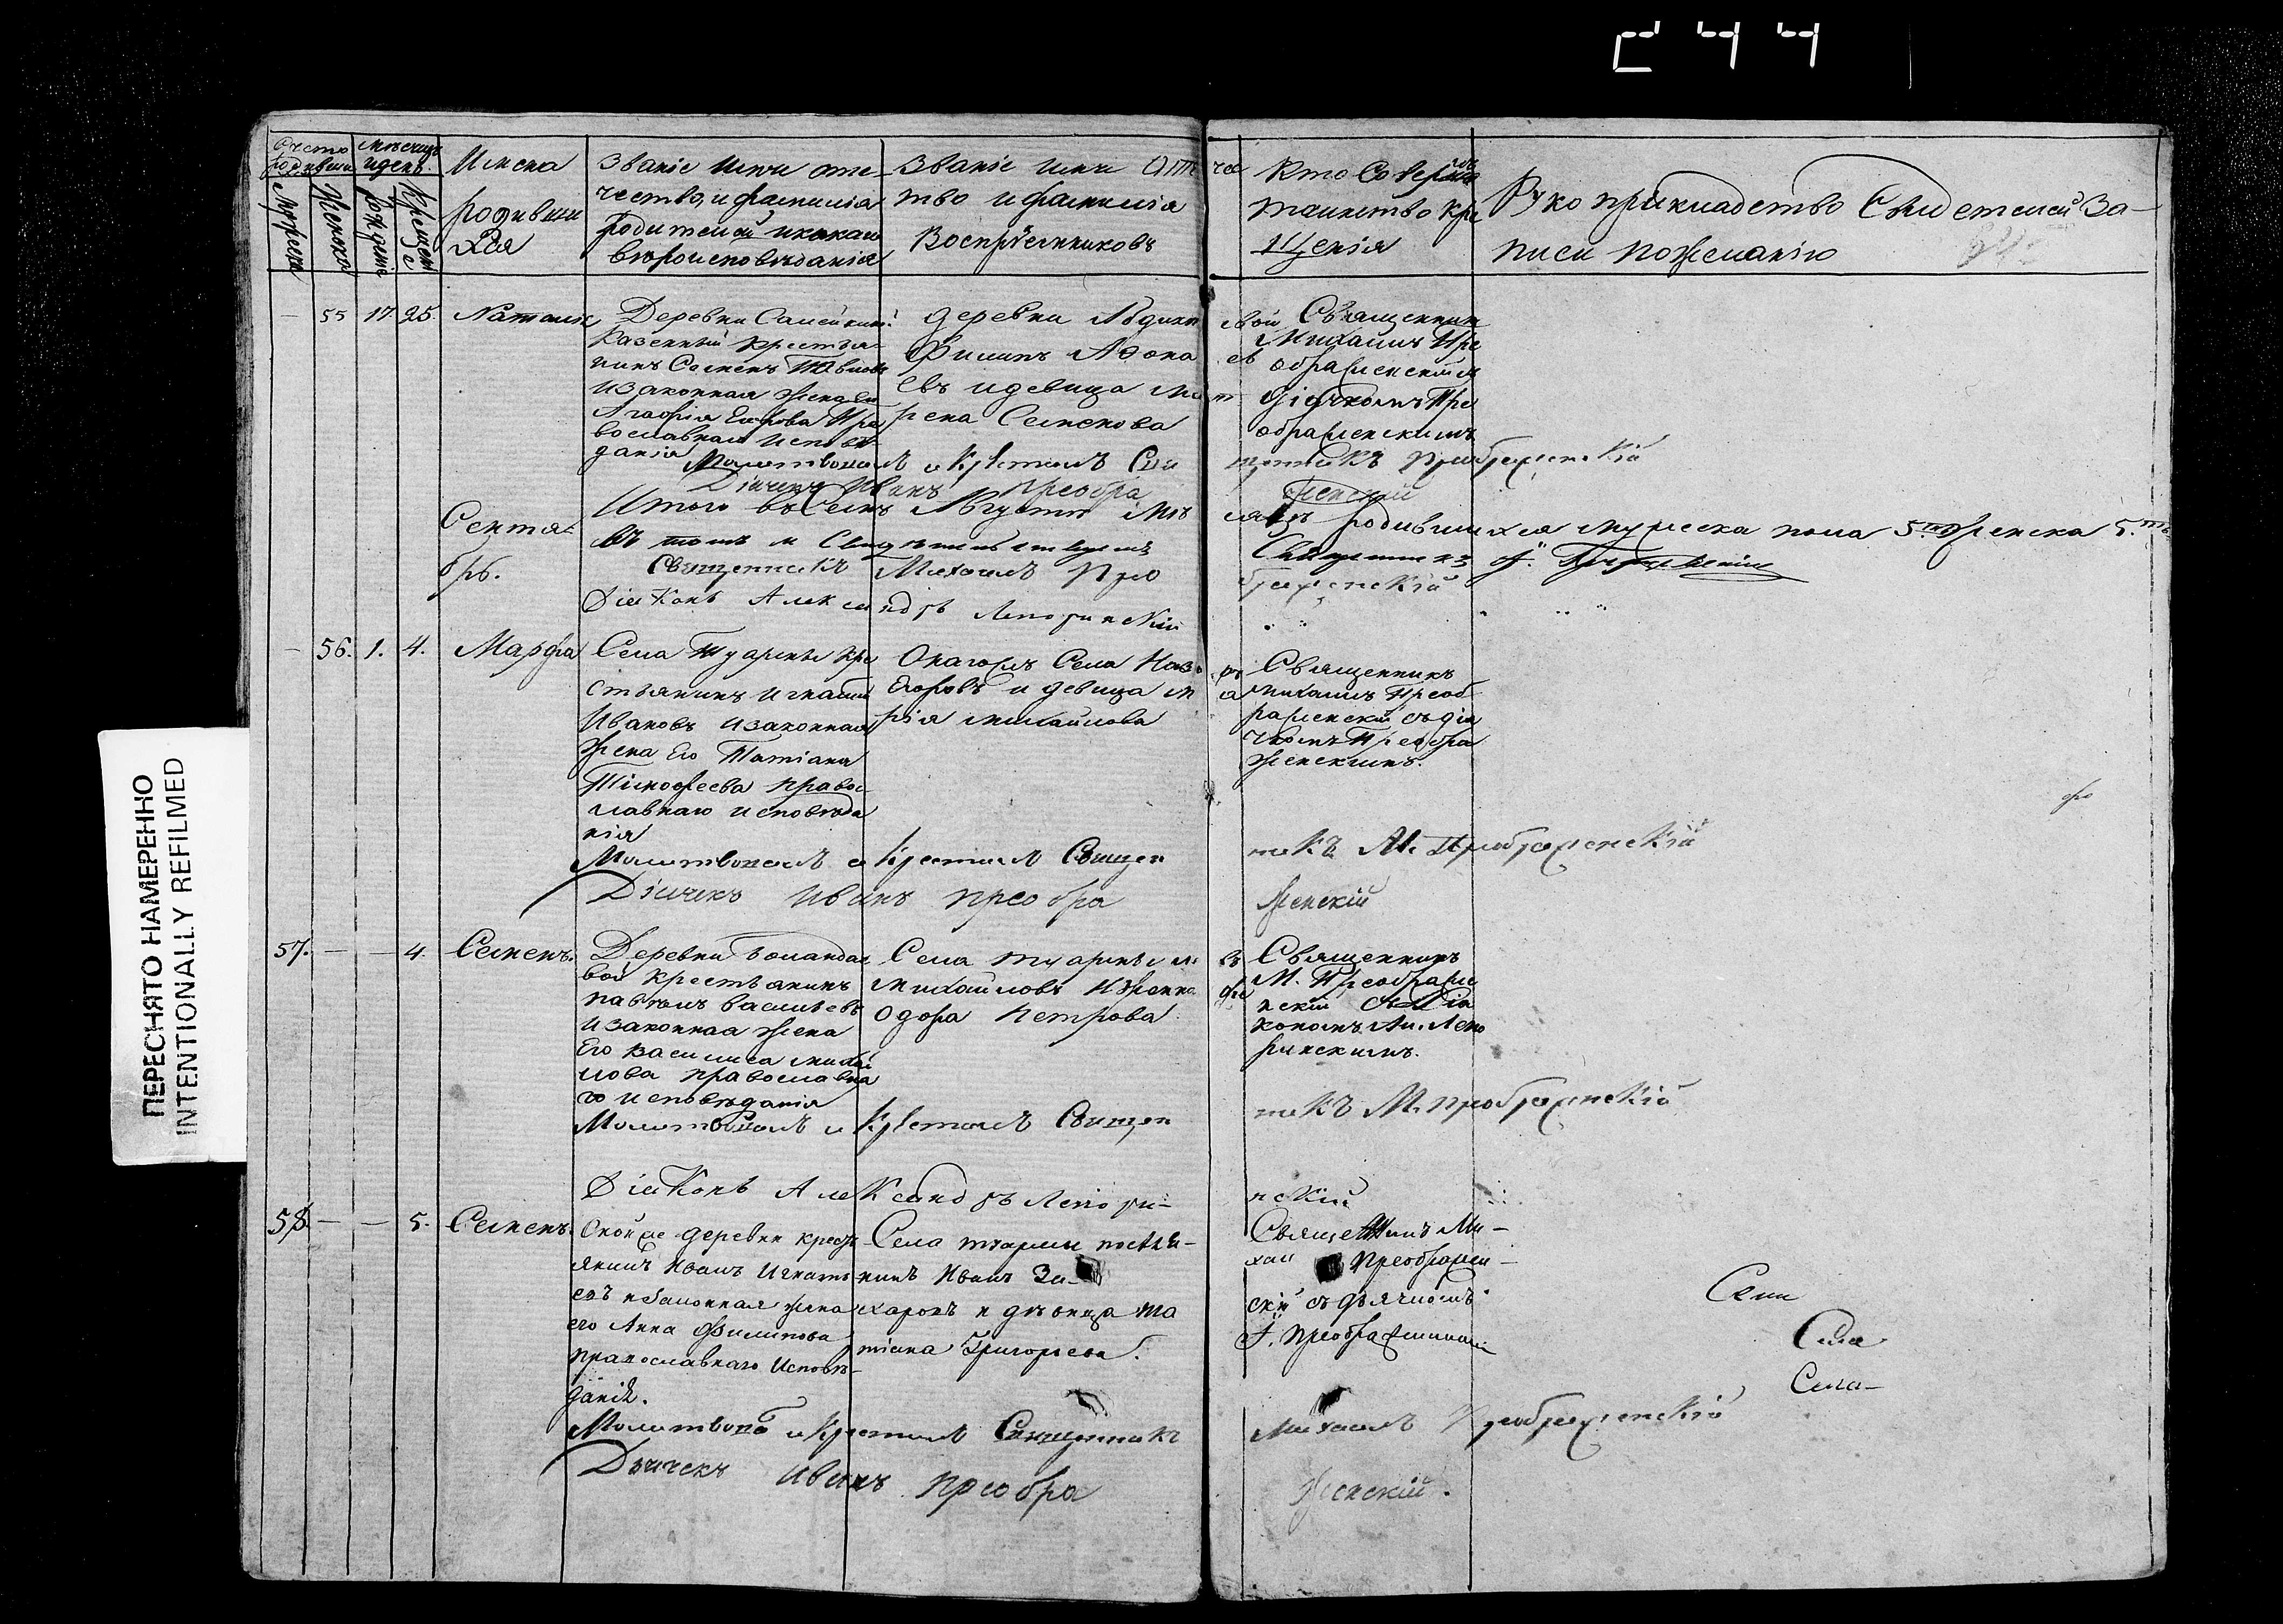 244
Счетъ родившихся
Мѣсяцъ и день
Имена родивши хся
Званіе имя оте-
чество, и фамилія
родителей и какаго
вѣроисповѣданія
Званіе имя Отчес
тво и фамилія
Воспріемниковъ
Кто Совершалъ
таинство кре
щенія
Рукоприкладство Свидетелей За-
писи по желанію
Мужеска
Женска
Рожденія
Крещенія
— 55 17 25. Наталья
Деревни
Казенный крестья-
нинъ Семенъ
и законная жена его
Агафія Пра
вославнаго исповѣ-
данія
деревни
Филипъ
евъ и девица Ма
рена Семенова
Священникъ
Михаилъ Пре
ображенскій
Дiячкомъ Пре
ображенскимъ
Молитвовалъ и Крестилъ Свя щенникъ Преображенскій
Діячекъ Иванъ Преобра женскій
Итого въ Семъ Августѣ Мѣ сяцѣ родившихся мужеска пола 5. женска 5.
Сентя-
брь.
Въ томъ и Свидѣтельствуемъ
Священникъ Михаилъ Прео браженскій
Діаконъ Алекса ндръ Лепоринскій
— 56. 1. 4. Марфа
Села Туармы кре
стьянинъ Игнатій
Ивановъ и законная
жена Его Татіана
Тимофеева право-
славнаго исповѣда
нія
Онагожъ Села
Егоровъ и девица Ма
рія Михайлова
Священникъ
Михаилъ Преоб-
раженскій съ дiя
чкомъ Преобра
женскимъ.
Молитвовалъ и Крестилъ Священ никъ М. Преображенскій
Діячекъ Иванъ Преобра женскій
57. — — 4. Семенъ.
Деревни
вой крестьянинъ
Павелъ Васильевъ
и законная жена
Его Василиса Михай
лова православна
го исповѣданія
Села Туармы
Михайловъ
одора Петрова
Священникъ
М. Преображе
нскій съ Діа
кономъ Ал. Лепо
ринскимъ.
Молитвовалъ и Крестилъ Священ никъ М. Преображенскій
Діаконъ Александръ Лепори- нскій
58. — — 5. Семенъ.
Оной же деревни кресть
янинъ Иванъ Игнать
евъ и законная жена
его Анна Филипова
православнаго Исповѣ-
данія.
Села Туармы
нинъ Иванъ За-
харовъ и дѣвица Та
тіана Григорьева.
Священникъ Ми-
хаилъ Преображен-
скій съ дьячкомъ
І. Преображенским
Села
Села-
Молитвовалъ и Крестилъ Священникъ Михаилъ Преображенскій
Дьячекъ Иванъ Преобра женскій.
ПЕРЕСНЯТО НАМЕРЕННО
INTENTIONALLY REFILMED